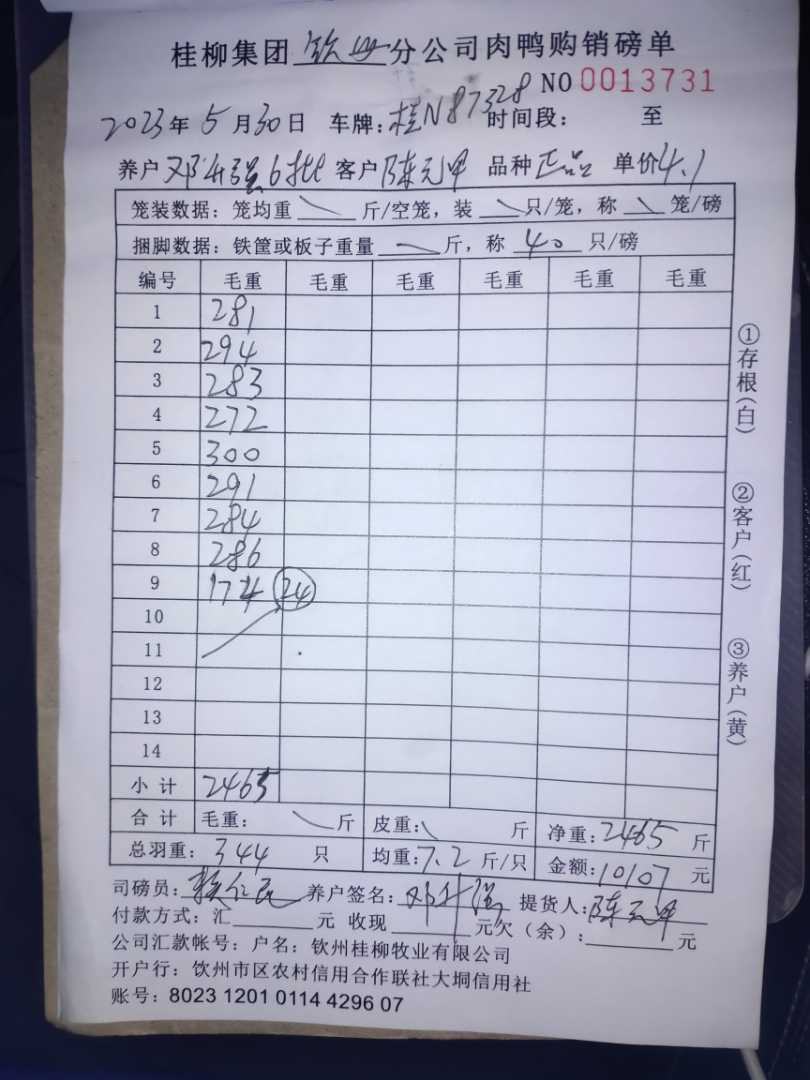 桂柳集团 钦州 分公司肉鸭购销磅单
NO 0013731
2023年 5月30日 车牌：桂N87328 时间段： 至
养户 邓升强6批 客户 陈元甲 品种 正品 单价 4.1
笼装数据：笼均重 斤/空笼，装 只/笼，称 笼/磅
捆脚数据：铁筐或板子重量 斤，称 40 只/磅
编号 毛重 毛重 毛重 毛重 毛重 毛重
1 281
2 294
3 283
4 272
5 300
6 291
7 284
8 286
9 174 24
10
11
12
13
14
小计 2465
合计 毛重： 斤 皮重： 斤 净重：2465 斤
总羽重：344 只 均重：7.2 斤/只 金额：10107 元
司磅员： 养户签名：邓升强 提货人：陈元甲
付款方式：汇 元 收现 元欠（余）： 元
公司汇款帐号：户名：钦州桂柳牧业有限公司
开户行：饮州市区农村信用合作联社大垌信用社
账号：8023 1201 0114 4296 07
①存根（白）
②客户（红）
③养户（黄）